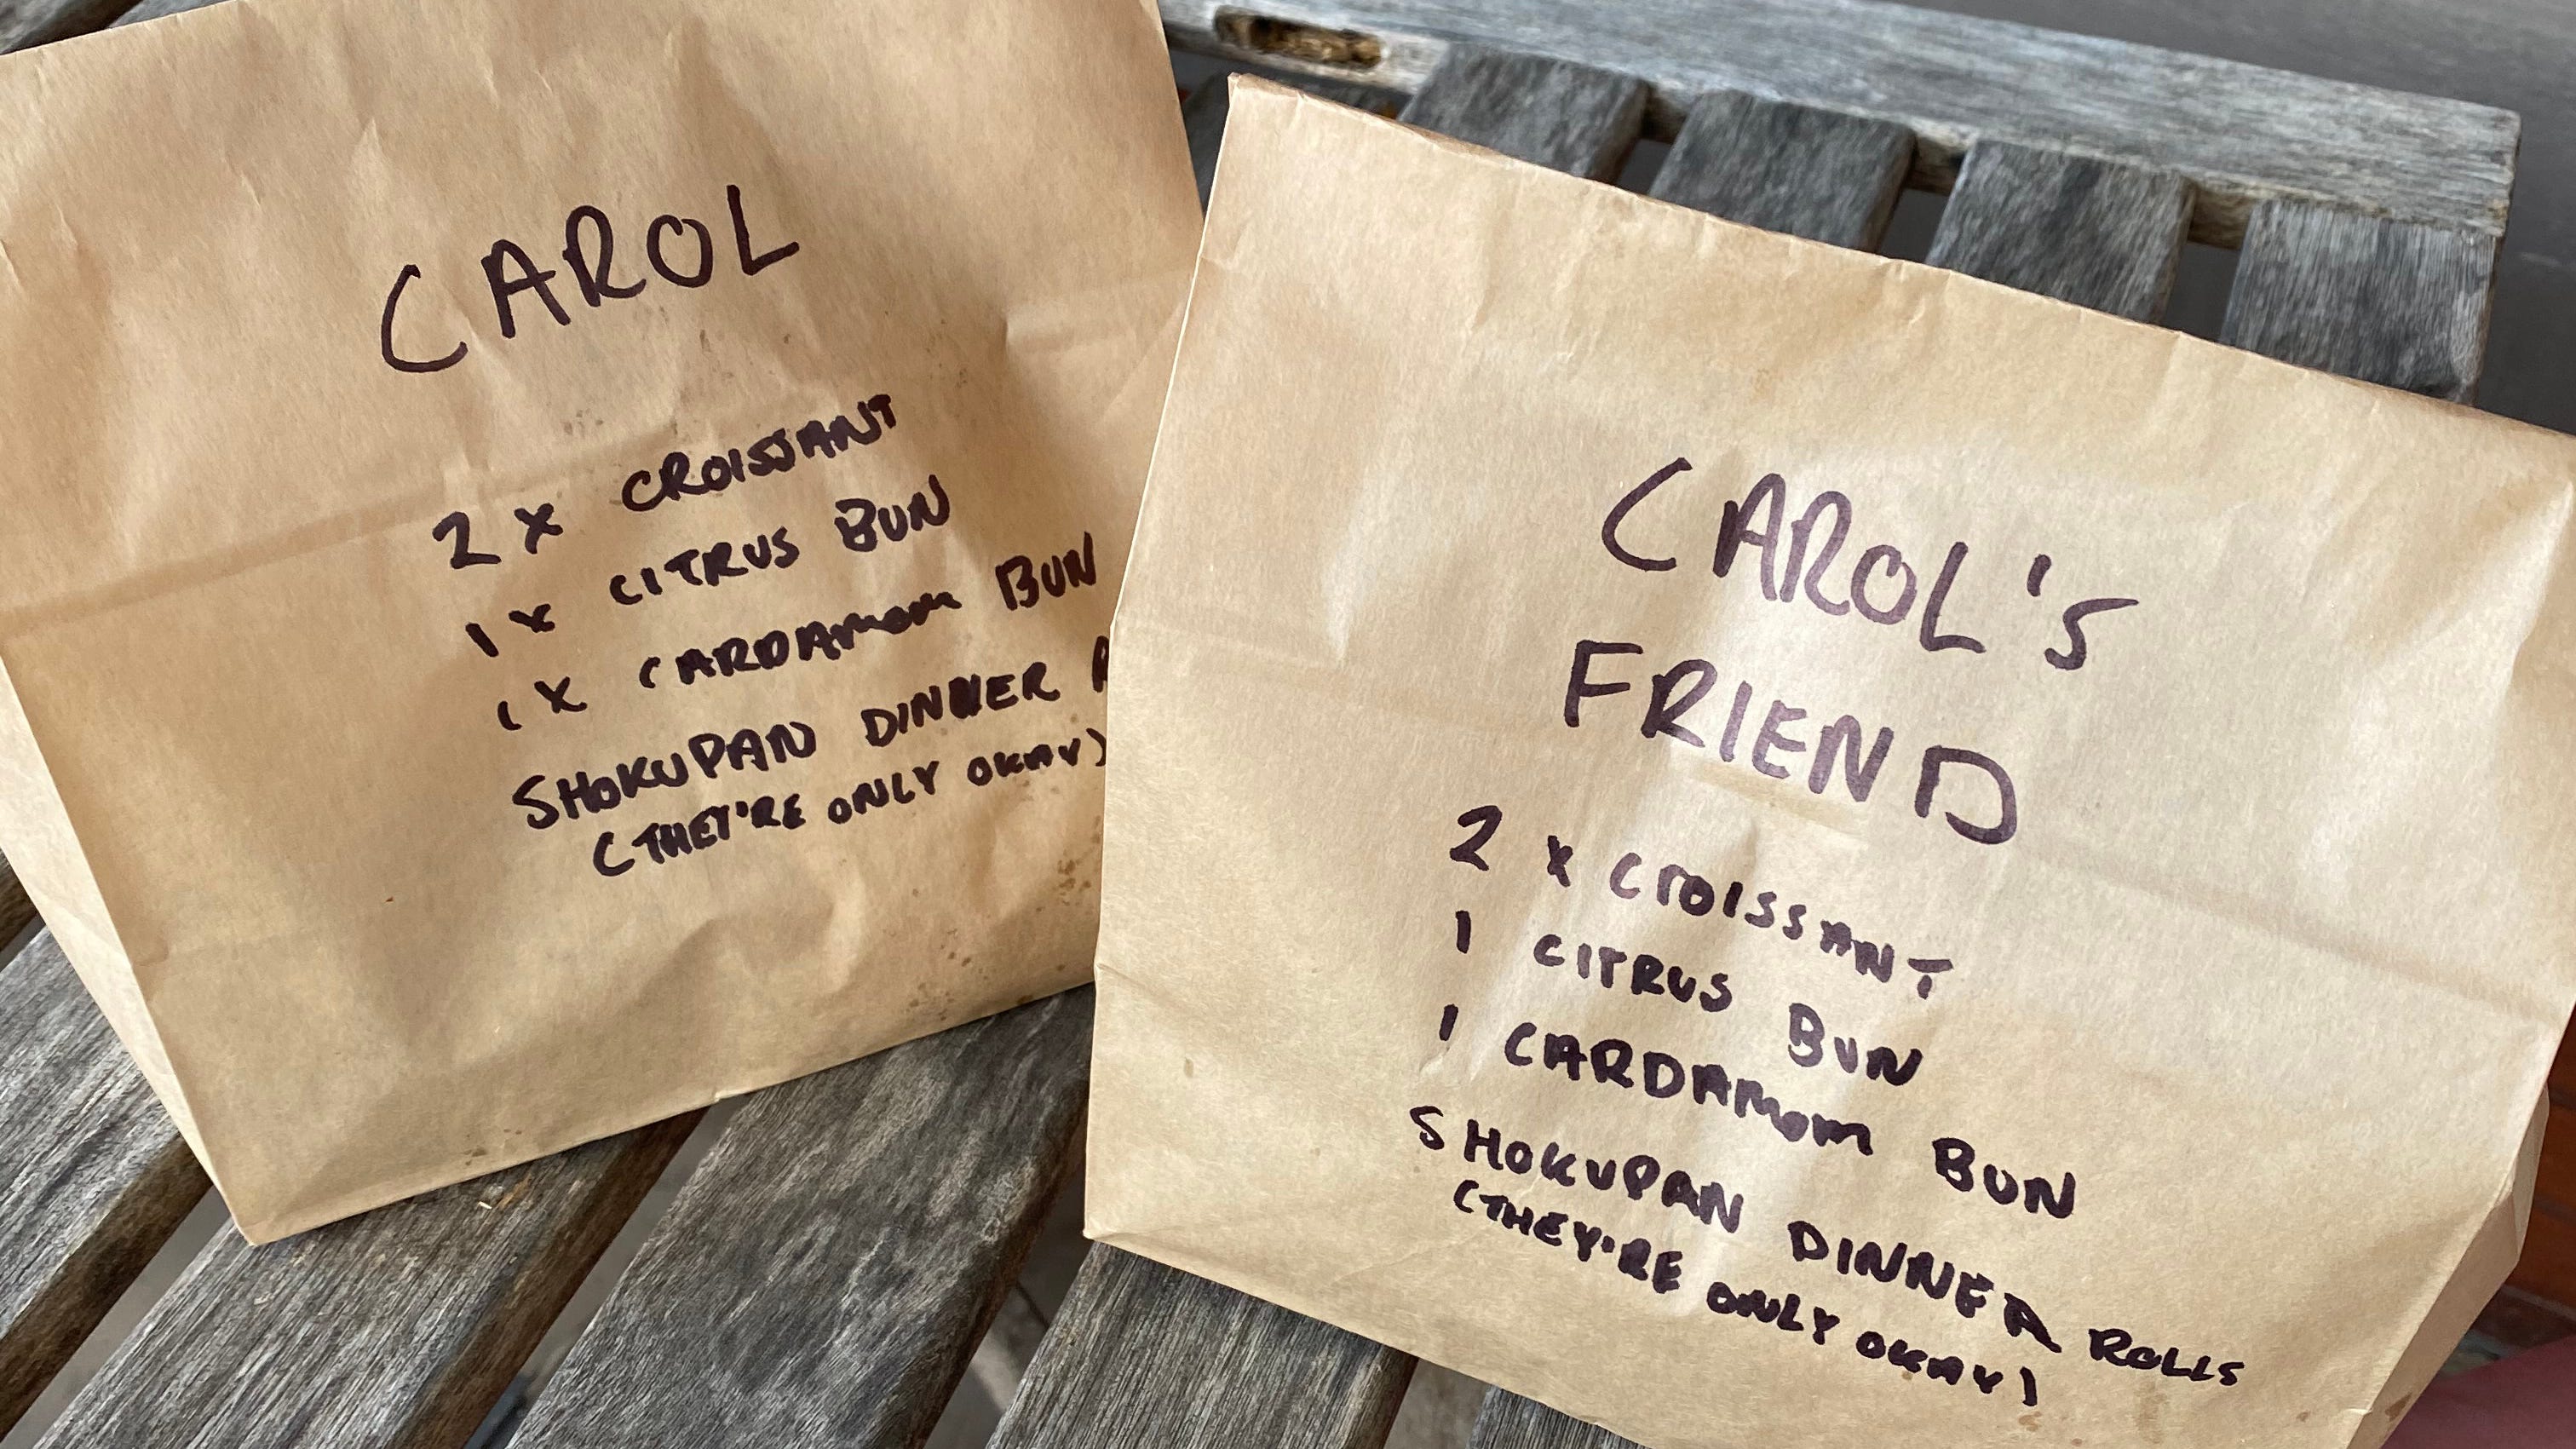 CAROL
2 x CROISSANT
1 x CITRUS BUN
1 x CARDAMOM BUN
SHOKUPAN DINNER
(THEY'RE ONLY OKAY)
CAROL'S
FRIEND
2 x CROISSANT
1 CITRUS BUN
1 CARDAMOM BUN
SHOKUPAN DINNER ROLLS
(THEY'RE ONLY OKAY)